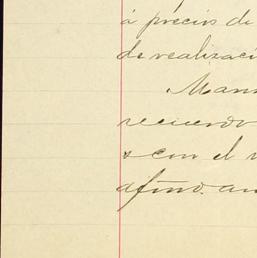 á précios de
de realizaci
Man
recuerdo
y con el
afmo. am